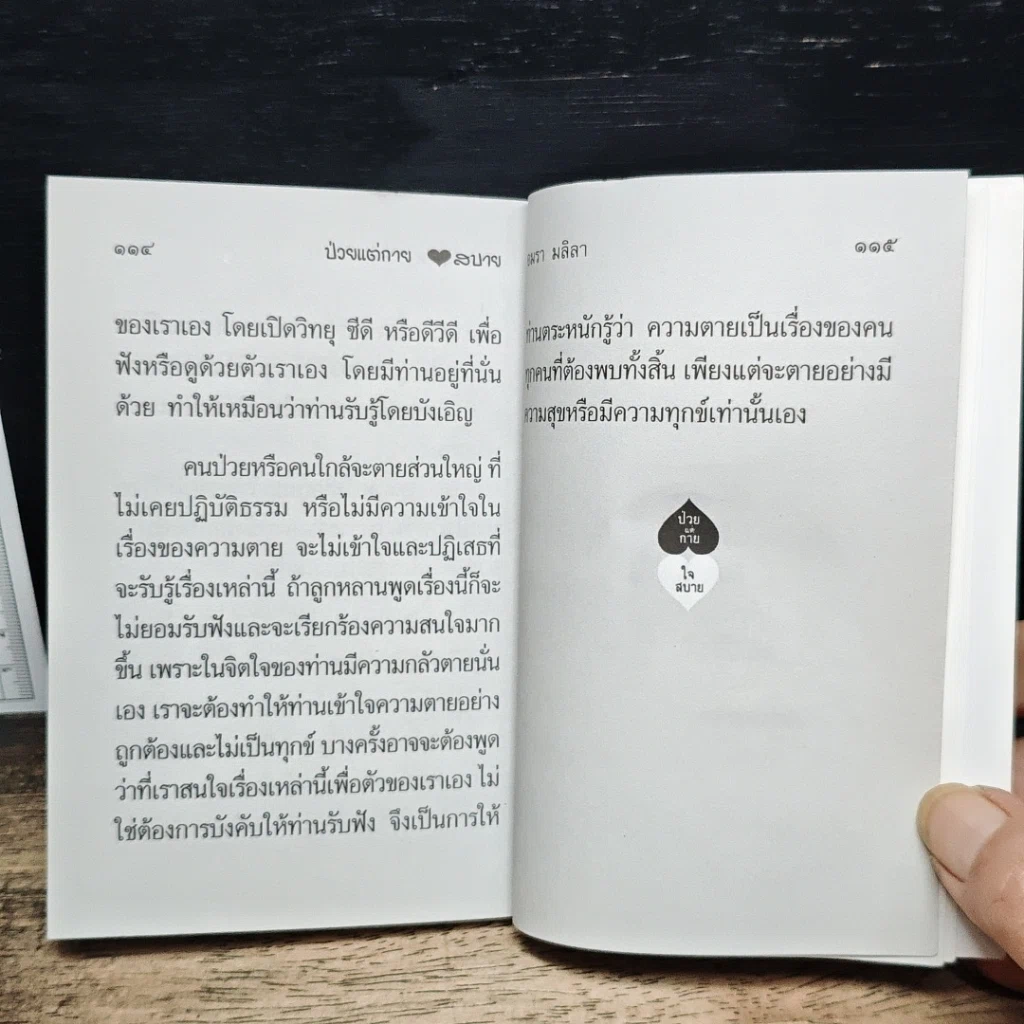 ๑๑๔
ป่วยแต่กาย ♥สบาย
ของเราเอง โดยเปิดวิทยุ ซีดี หรือดีวีดี เพื่อ
ฟังหรือดูด้วยตัวเราเอง โดยมีท่านอยู่ที่นั่น
ด้วย ทำให้เหมือนว่าท่านรับรู้โดยบังเอิญ
คนป่วยหรือคนใกล้จะตายส่วนใหญ่ ที่
ไม่เคยปฏิบัติธรรม หรือไม่มีความเข้าใจใน
เรื่องของความตาย จะไม่เข้าใจและปฏิเสธที่
จะรับรู้เรื่องเหล่านี้ ถ้าลูกหลานพูดเรื่องนี้ก็จะ
ไม่ยอมรับฟังและจะเรียกร้องความสนใจมาก
ขึ้น เพราะในจิตใจของท่านมีความกลัวตายนั่น
เอง เราจะต้องทำให้ท่านเข้าใจความตายอย่าง
ถูกต้องและไม่เป็นทุกข์ บางครั้งอาจจะต้องพูด
ว่าที่เราสนใจเรื่องเหล่านี้เพื่อตัวของเราเอง ไม่
ใช่ต้องการบังคับให้ท่านรับฟัง จึงเป็นการให้
อมรา มลิลา
๑๑๕
ท่านตระหนักรู้ว่า ความตายเป็นเรื่องของคน
ทุกคนที่ต้องพบทั้งสิ้น เพียงแต่จะตายอย่างมี
ความสุขหรือมีความทุกข์เท่านั้นเอง
ป่วย
แต่
กาย
ใจ
สบาย